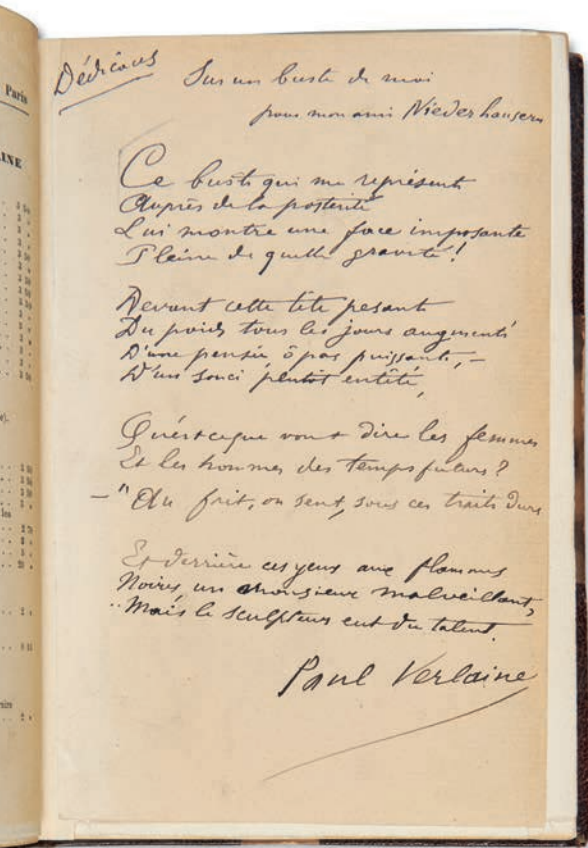 Paris
INE
Dédicaces
Sur un buste de moi
pour mon ami Niederhausern
Ce buste qui me représente
Auprès de la postérité
Lui montre une face imposante
Pleine de quelle gravité!
Devant cette tête pesant
Du poids tous les jours augmenté
D'une pensée, ô pas puissante, –
D'un souci plutôt entêté,
Qu'est-ce que vont dire les femmes
Et les hommes des temps futurs?
– "Au fait, on sent, sous ces traits durs
Et derrière ces yeux aux flammes
Noires, un monsieur malveillant,
..Mais le sculpteur eut du talent.
Paul Verlaine